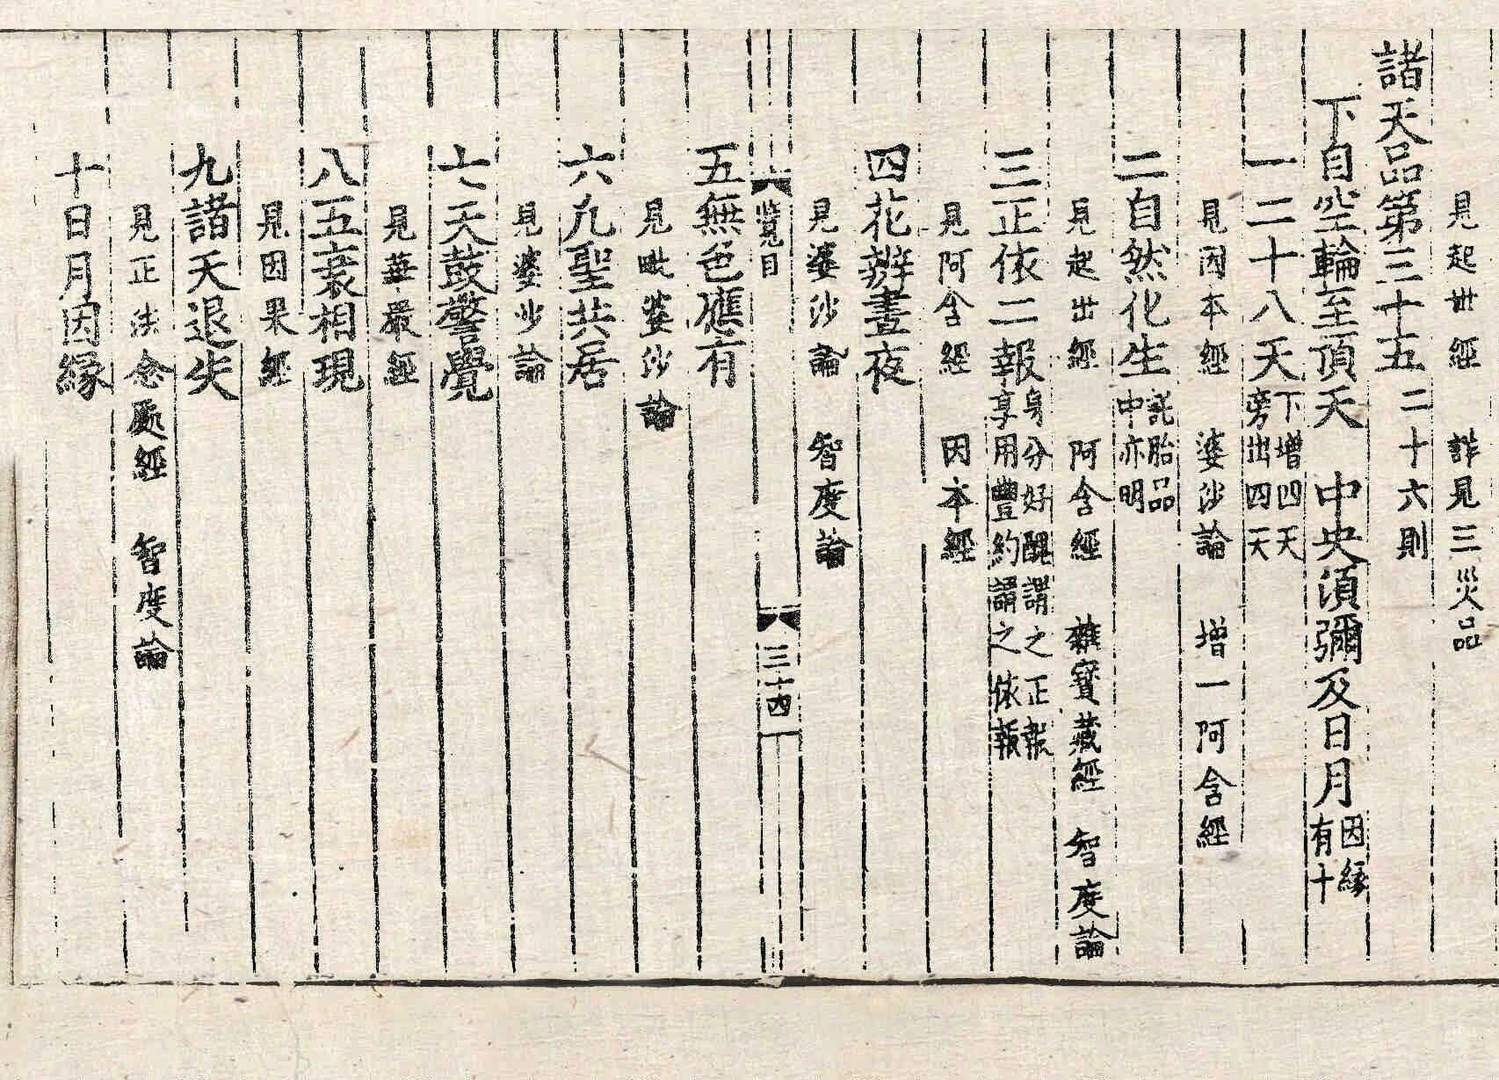 見起世經 詳見三災品
諸天品第三十五 二十六則
下自空輪至頂天 中央須彌及日月 因縁有十
一二十八天 下增四天旁出四天
見因本經 婆沙論 增一阿含經
二自然化生 託胎品中亦明
見起出經 阿含經 雜寶藏經 智度論
三正依二報 身分好醜謂之正報享用豐約謂之依報
見阿含經 因本經
四花辨晝夜
見婆沙論 智度論
覽目 三十四
五無色應有
見毗婆沙論
六凡聖共居
見婆沙論
七天鼓警覺
見華嚴經
八五衰相現
見因果經
九諸天退失
見正法念處經 智度論
十日月因縁